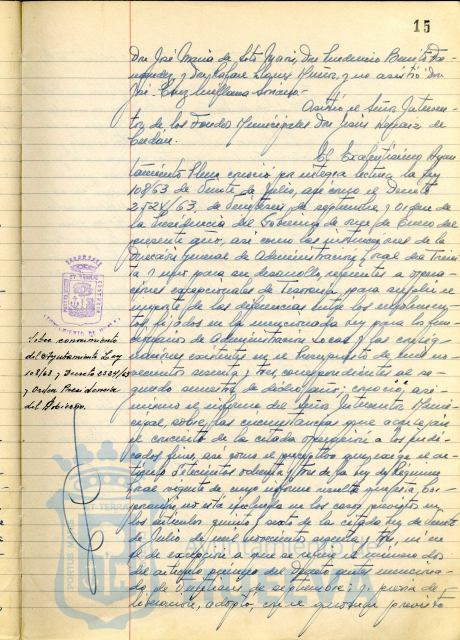 15
Don José María de Soto Marín, Don Prudencio Benito
y Don Rafael López Muñoz, y no asistió Don
José Cruz
Asistió el Señor Interven-
tor de los Fondos Municipales Don Jesús de
Cerdán.
El Excelentísimo Ayun
tamiento Pleno conoció por íntegra lectura la ley
108/63 de veinte de Julio, así como el Decreto
2524/63, de veintiseis de septiembre, y Orden de
la Presidencia del Gobierno de once de Enero del
presente año, así como las instrucciones de la
Dirección General de Administración Local de
y uno para su desarrollo, referentes a opera-
ciones excepcionales de Tesorería para
importe de las diferencias entre los emolumen-
tos fijados en la mencionada ley para los fun-
cionarios de Administración Local y las consig-
naciones existentes en el Presupuesto de mil no-
vecientos sesenta y tres correspondientes al se-
gundo semestre de dicho año; conoció, así-
mismo el informe del Señor Interventor Muni-
cipal, sobre las circunstancias que aconsejan
el concierto de la citada operación a los indi-
cados fines, así como el preceptivo que exige el ar-
tículo setecientos ochenta y tres de la ley de Régimen
Local vigente de cuyo informe resulta que esta Cor-
poración no está incluida en los casos previstos en
los artículos quinto y sexto de la citada ley de veinte
de Julio de mil novecientos sesenta y tres, ni en
el de excepción a que se refiere el número dos
del artículo primero del Decreto antes menciona-
do, de veintiseis de septiembre; y, previa de-
liberación, adoptó, con el quorum previsto
Sobre conocimiento
del Ayuntamiento Ley
108/63 y Decreto 2524/63
y Orden Presidencia
del Gobierno.